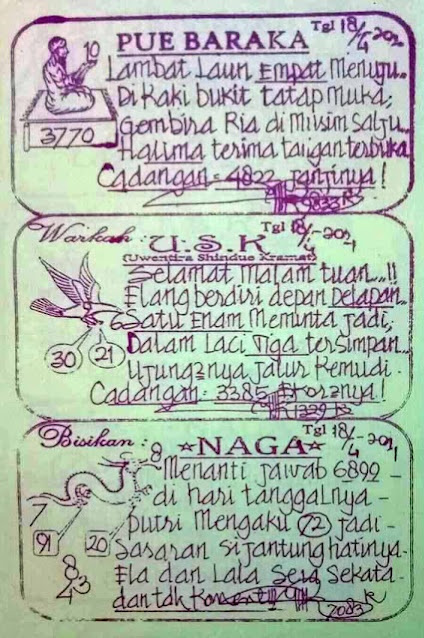 Tgl 18/4-2021
PUE BARAKA
10
Lambat Laun Empat Menuju..
Di Kaki bukit tatap Muka;
3770
Gembira Ria di Musim Salju...
Halima terima tangan terbuka
Cadangan = 4822 janjinya!
9833
Tgl 18/4-2021
Warkah :
U.S.K
(Uwentira Shindue Kramat)
Selamat Malam tuan...!!
Elang berdiri depan Delapan..
6
Satu Enam Meminta jadi;
30
21
Dalam Laci Tiga tersimpan...
Ujung2nya jalur Kemudi.
Cadangan : 3385
1339
Tgl 18/4-2021
Bisikan :
NAGA
8
Menanti jawab 6899 -
di hari tanggalnya -
7
putri Mengaku 72 jadi -
91
20
Sasaran si jantung hatinya.
8
3
4
Ela dan Lala Sera Sekata.
dan tak
7083